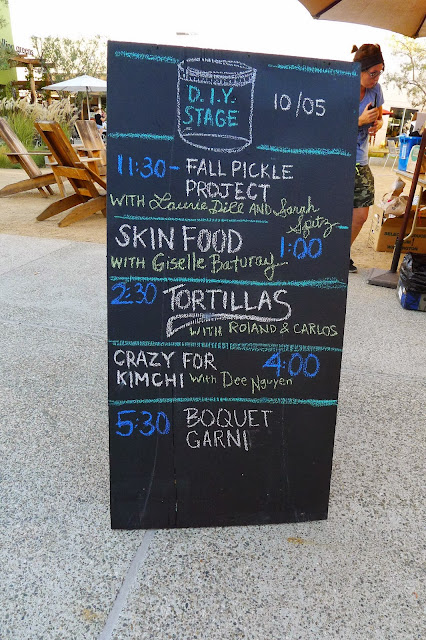 D.I.Y.
STAGE
10/05
11:30 - FALL PICKLE
PROJECT
WITH Laurie Dill AND Sarah
Spitz
SKIN FOOD 1:00
WITH Giselle Baturay
2:30 TORTILLAS
WITH ROLAND & CARLOS
CRAZY FOR 4:00
KIMCHI With Dee Nguyen
5:30 BOQUET
GARNI